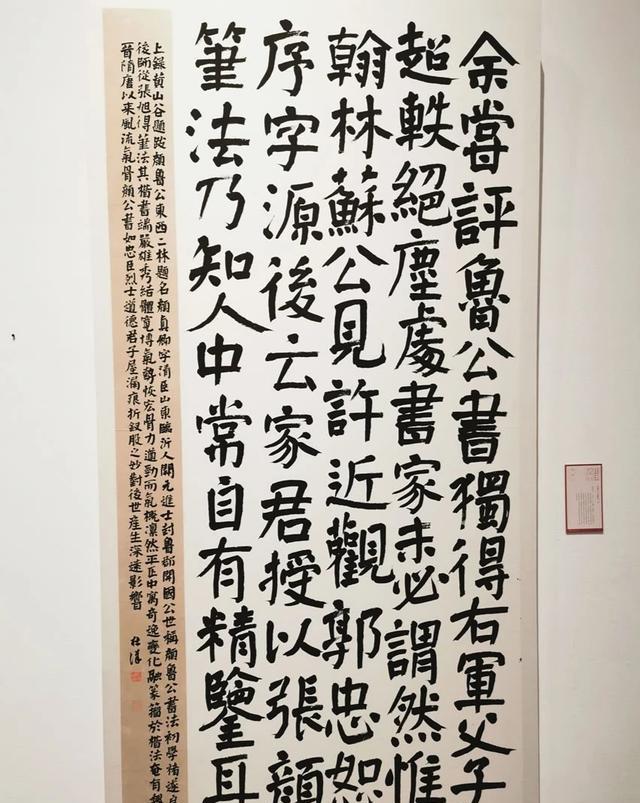 余嘗評魯公書獨得右軍父子
超軼絕塵處書家未必謂然惟
翰林蘇公見許近觀郭忠恕
序字源後云家君授以張顔
筆法乃知人中常自有精鑒耳
上錄黃山谷題跋顔魯公東西二林題名顔真卿字清臣山東臨沂人開元進士封魯郡開國公世稱顔魯公書法初學褚遂良
後師從張旭得筆法其楷書端嚴雄秀結體寬博氣勢恢宏骨力遒勁而氣概凜然平正中寓奇逸變化融篆籀於楷法奄有魏
晉隋唐以來風流氣骨顔公書如忠臣烈士道德君子屋漏痕折釵股之妙對後世產生深遠影響